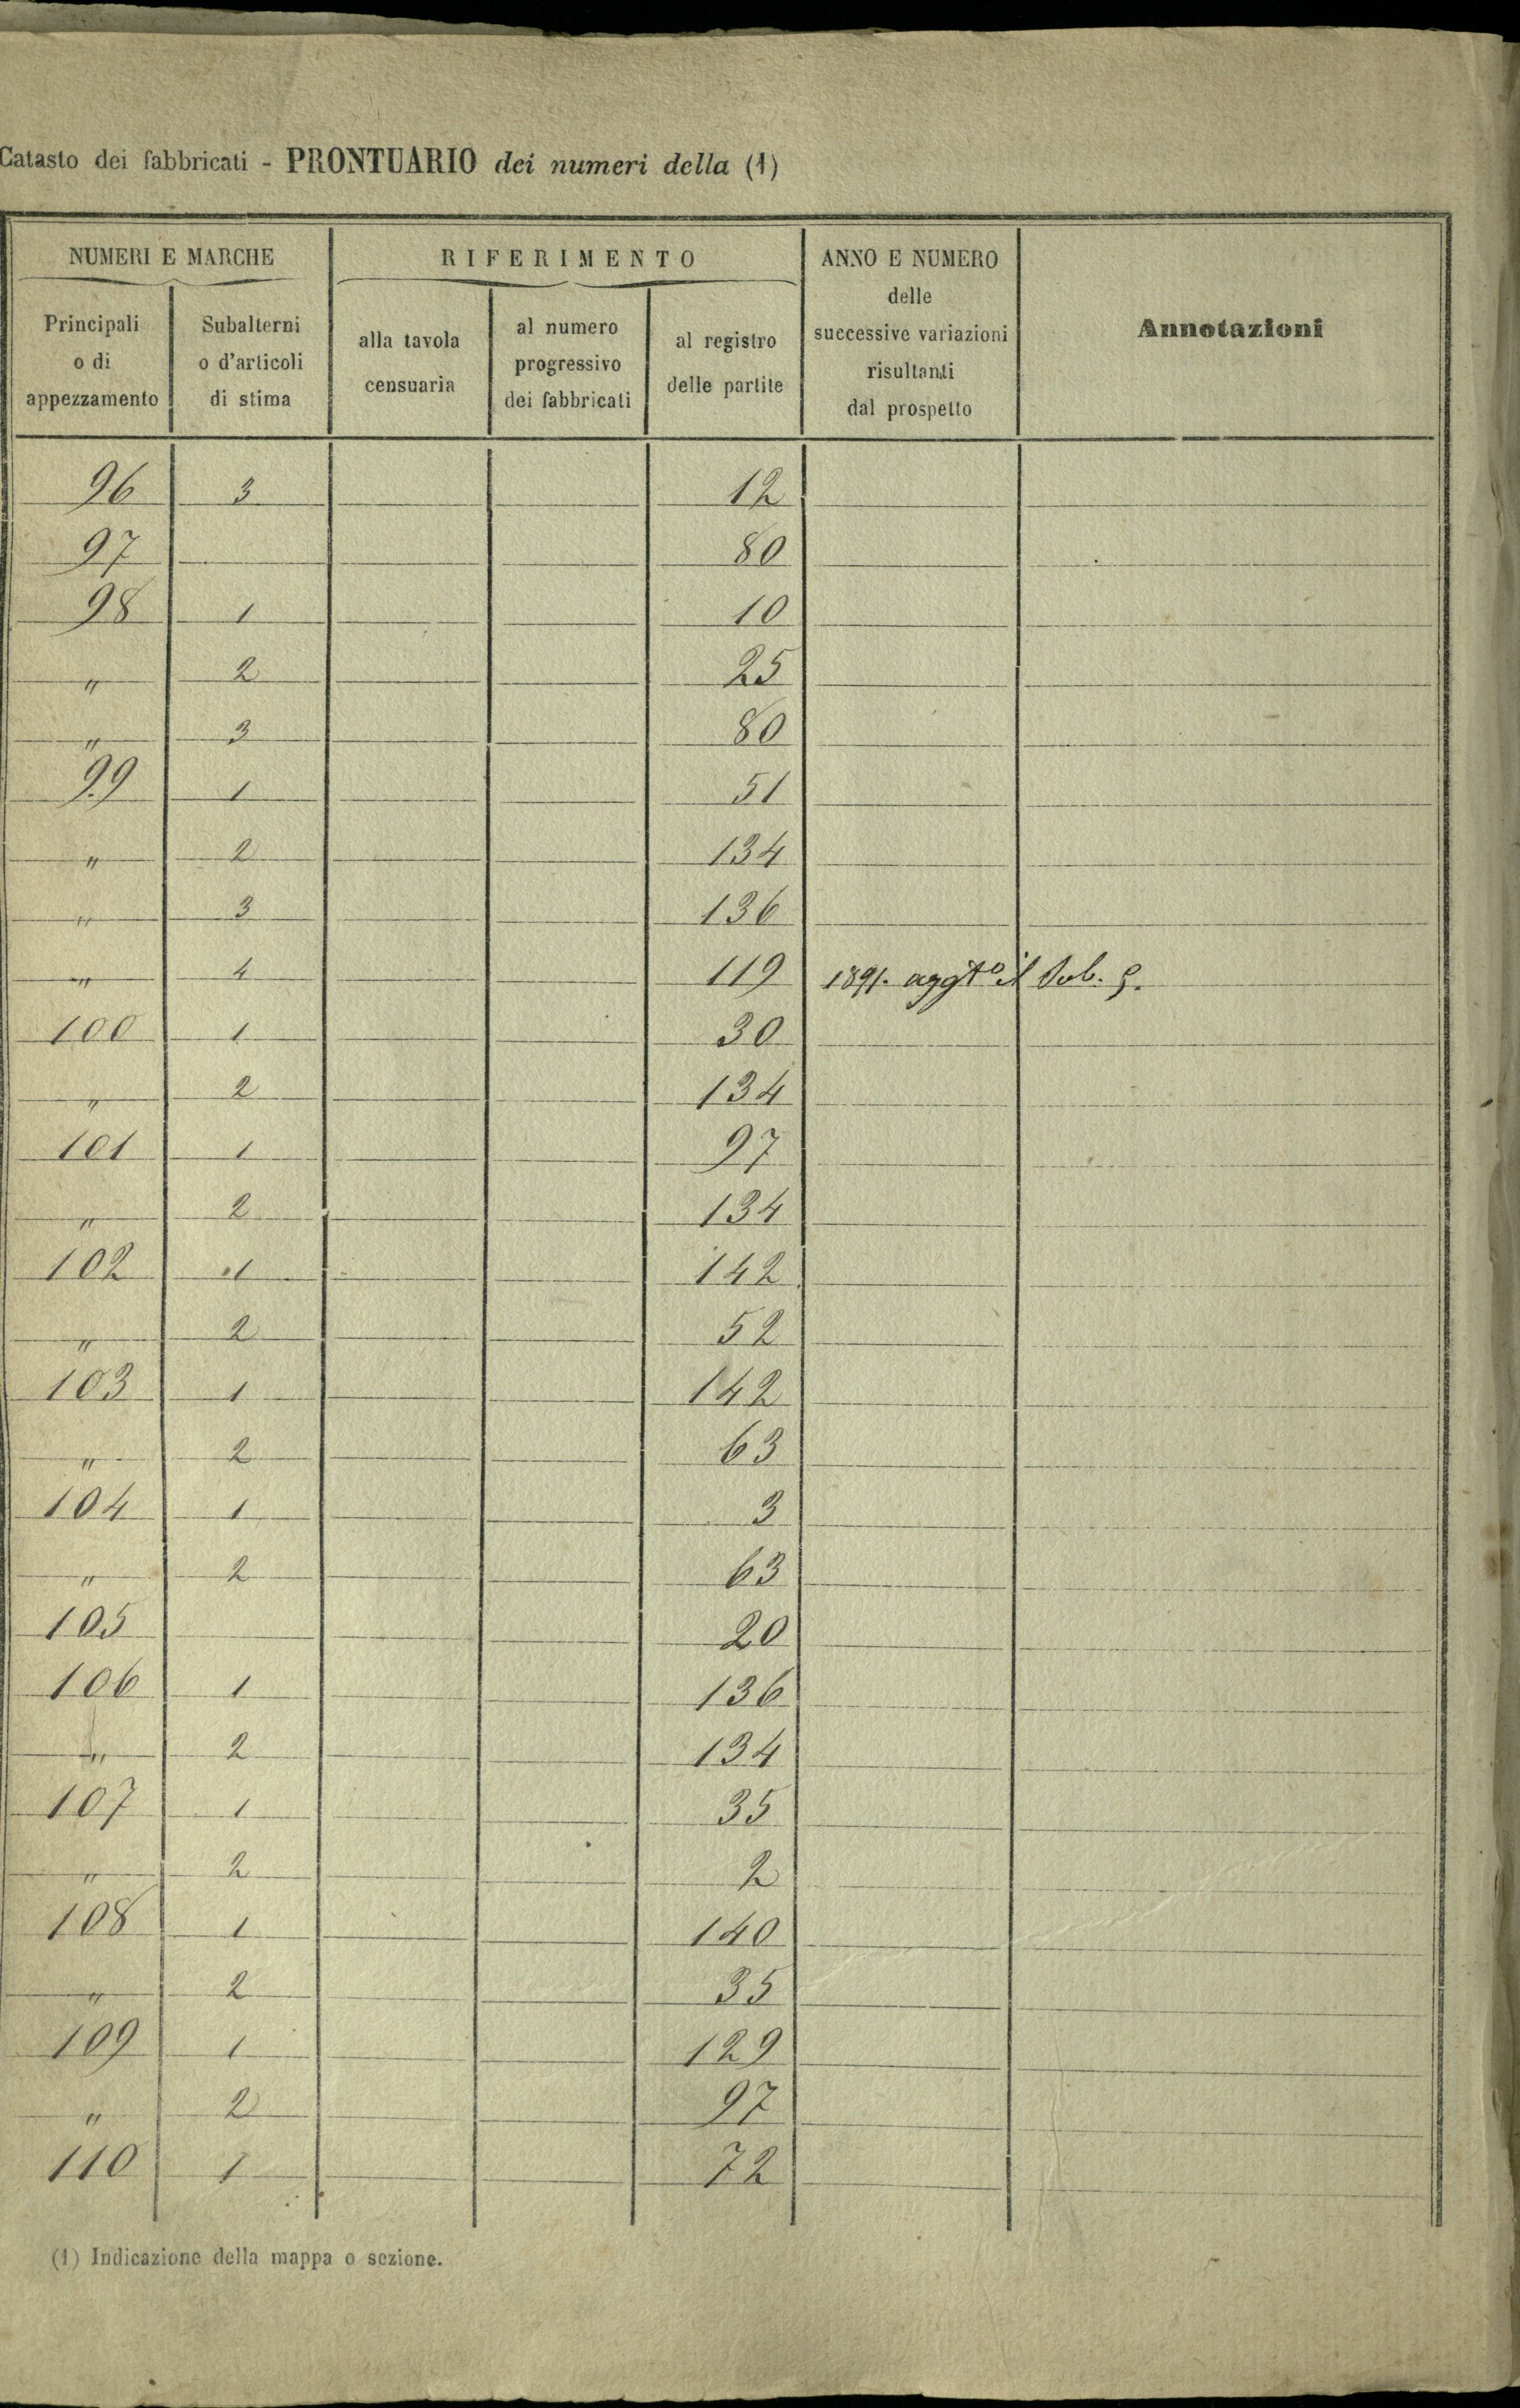 Catasto dei fabbricati - PRONTUARIO dei numeri della (1)
NUMERI E MARCHE RIFERIMENTO ANNO E NUMERO delle successive variazioni risultanti dal prospetto Annotazioni
Principali o di appezzamento Subalterni o d'articoli di stima alla tavola censuaria al numero progressivo dei fabbricati al registro delle partite
96 3 12
97 80
98 1 10
" 2 25
" 3 80
99 1 51
" 2 134
" 3 136
" 4 119 1891. aggto il Sub. 5.
100 1 30
" 2 134
101 1 97
" 2 134
102 1 142
" 2 52
103 1 142
" 2 63
104 1 3
" 2 63
105 20
106 1 136
" 2 134
107 1 35
" 2 2
108 1 140
" 2 35
109 1 129
" 2 97
110 1 72
(1) Indicazione della mappa o sezione.